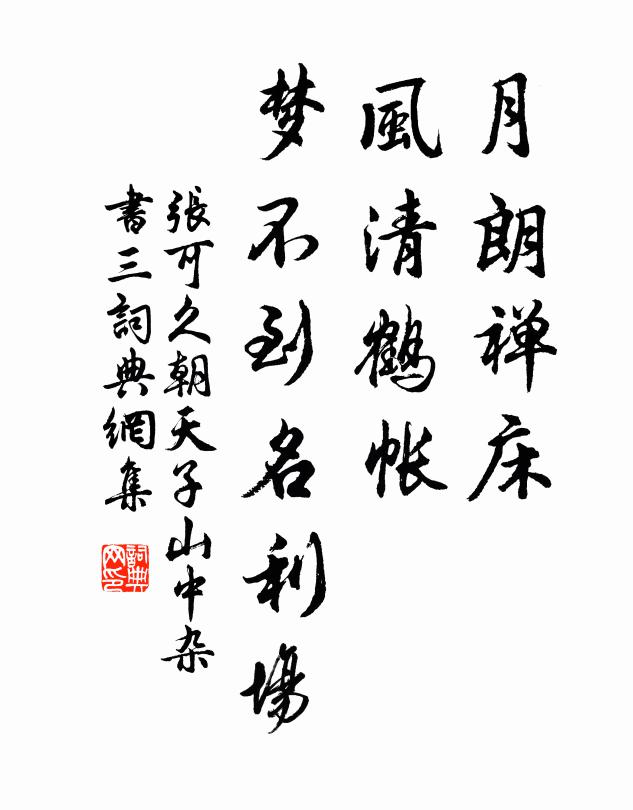 月朗禅床
風清鶴帐
梦不到名利場
張可久朝天子山中杂
書三詞典網集
詞典网印